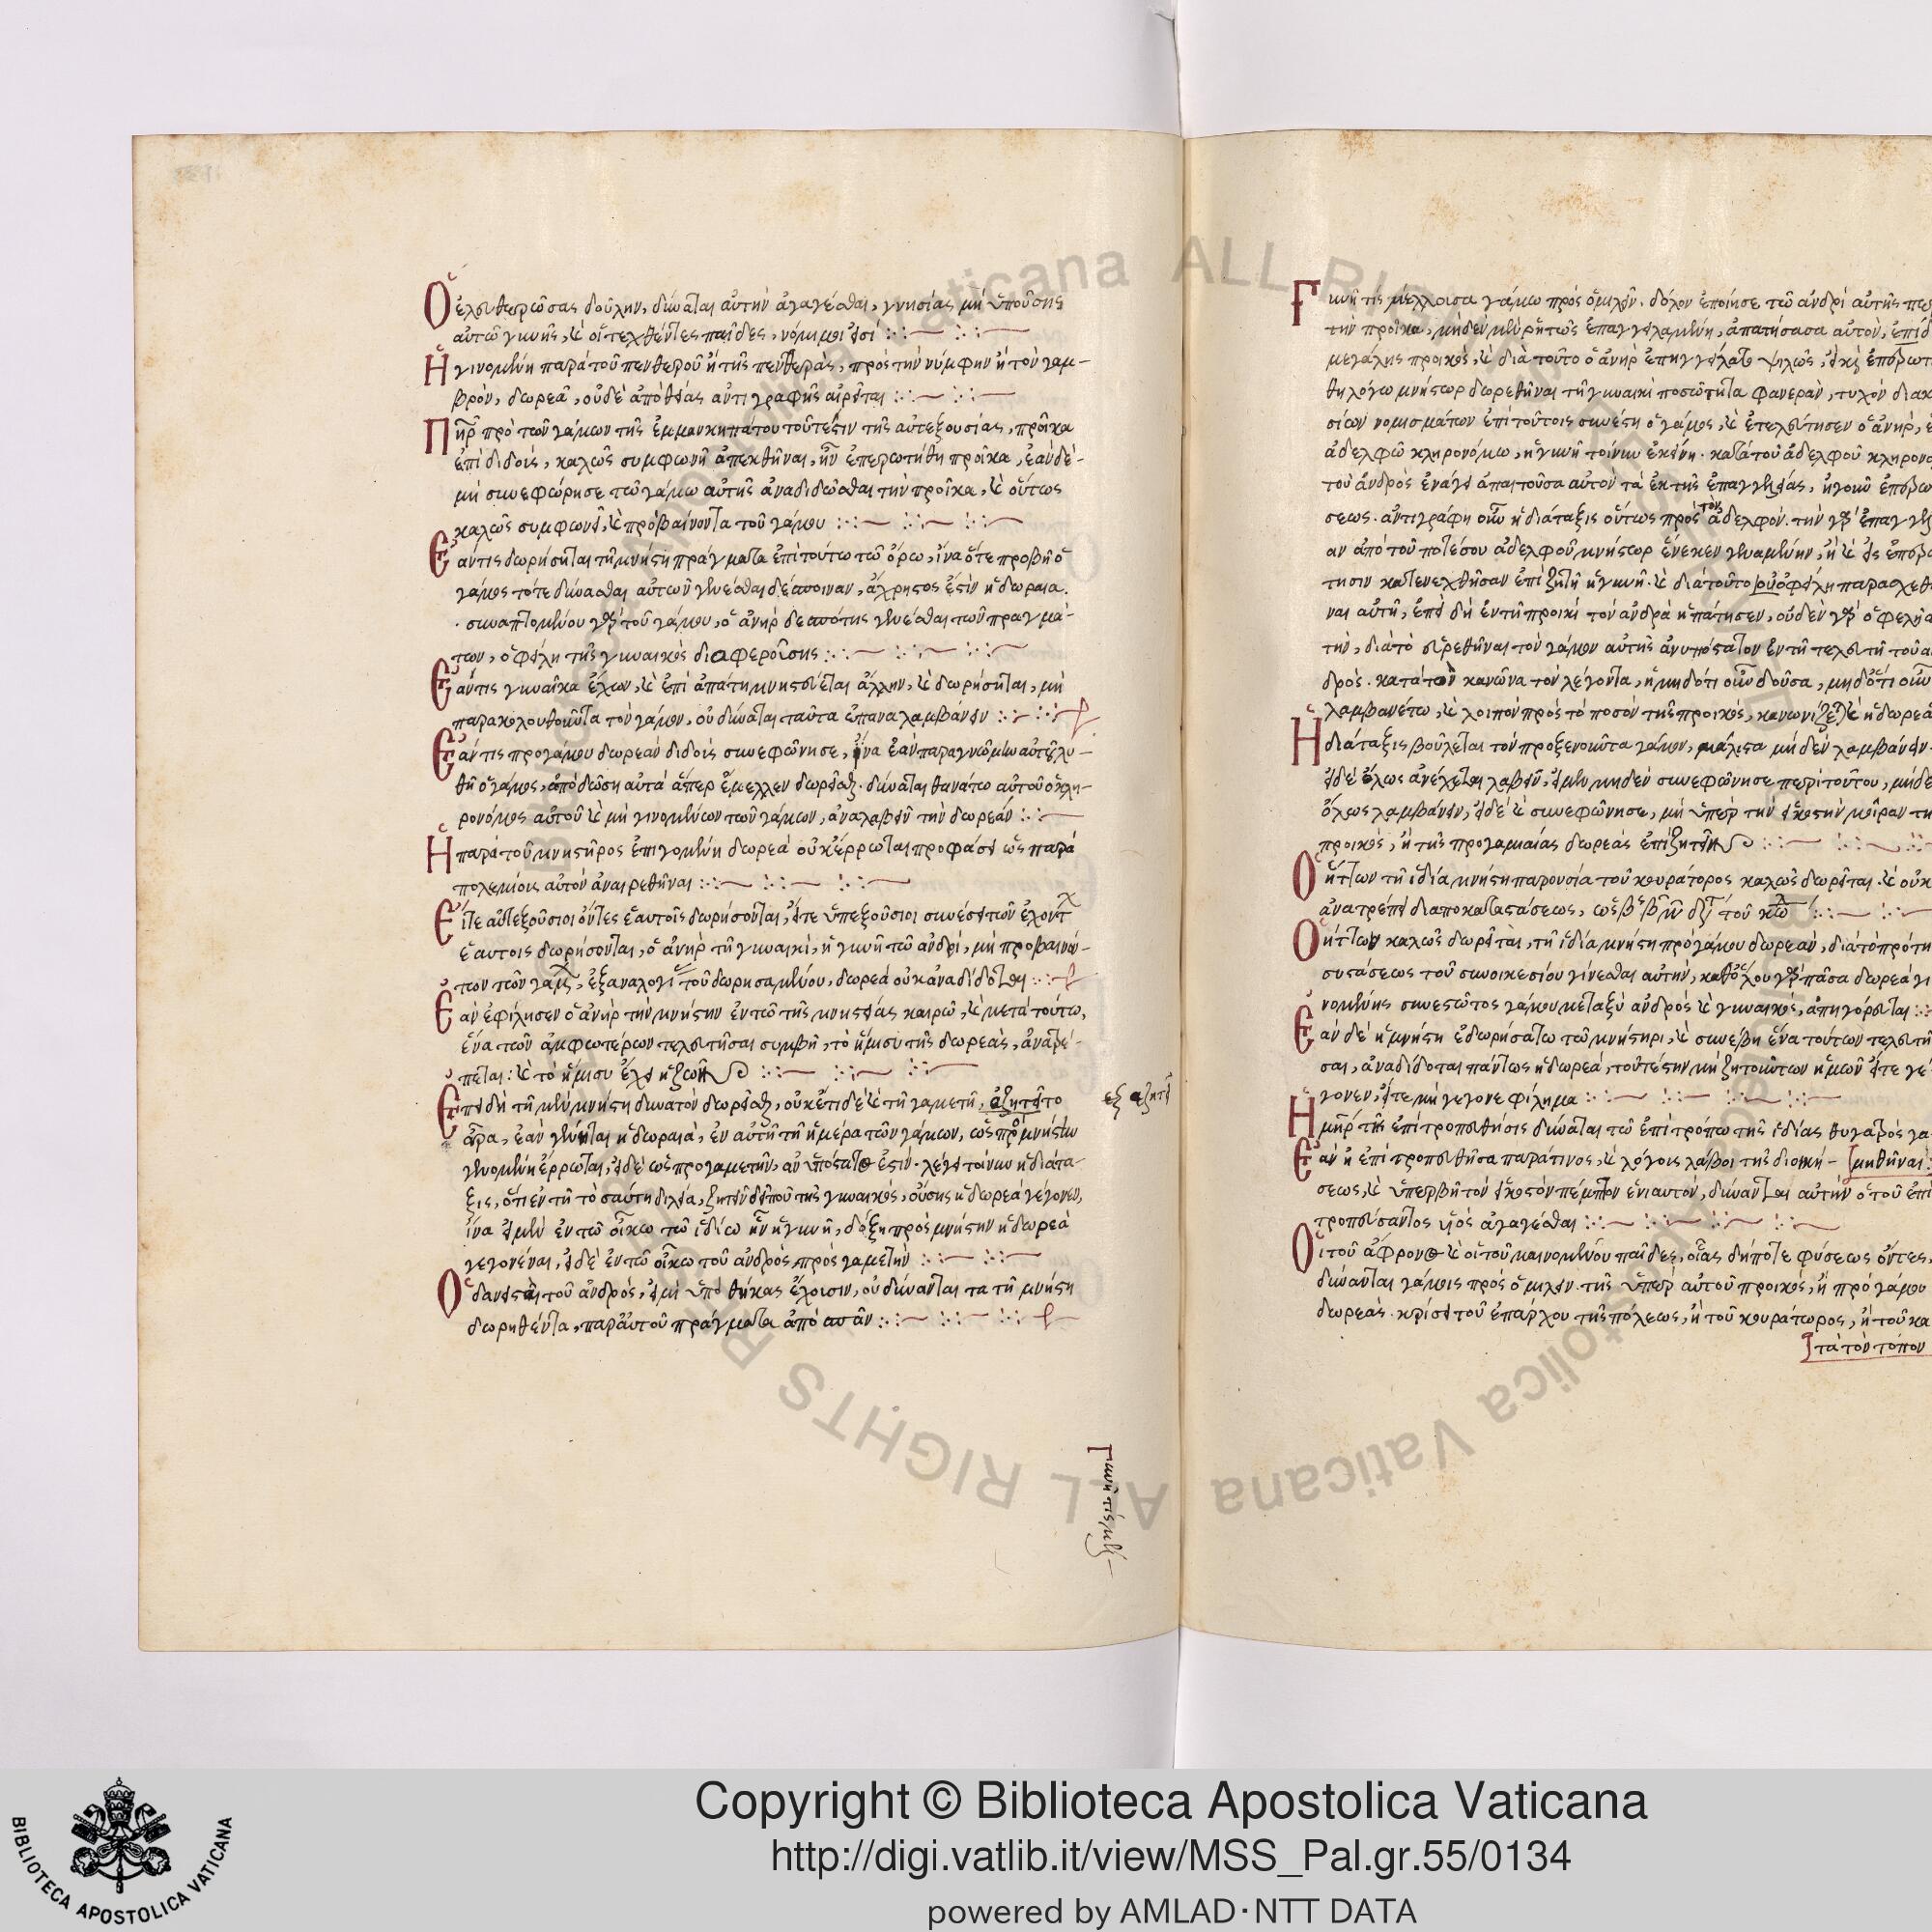 Ὁ ἐλευθερώσας δούλην, δύναται αὐτὴν ἀγαγέσθαι, γνησίας μὴ ὑπούσης
αὐτῶ γυνῆς, καὶ οἱ τεχθέντες παῖδες, νόμιμοι εἰσί
Ἡ γινομένη παρὰ τοῦ πενθεροῦ ἢ τῆς πενθερὰς, πρὸς τὴν νύμφην ἢ τὸν γαμ-
βρὸν, δωρεὰ, οὐδὲ ἀπὸ θείας ἀντιγραφῆς αἱρεῖται
Πηρ πρὸ τῶν γάμων τῆς ἐμμανκηπάτου τοῦτέστιν τῆς αὐτεξουσίας, προῖκα
ἐπιδιδοὺς, καλῶς συμφωνῆ ἀπεχθῆναι, ἣν ἐπερωτήθη προῖκα, ἐὰν δὲ-
μὴ συνεφώρησε τῶ γάμω αὐτῆς ἀναδιδῶσθαι τὴν προῖκα, καὶ οὕτως
καλῶς συμφωνεῖ, καὶ προβαίνοντα τοῦ γάμου
Ἐάν τις δωρήσηται τῆ μνήστη πράγματα ἐπὶ τούτω τῶ ὅρω, ἵνα ὅτε προβῆ ὁ
γάμος τότε δύνασθαι αὐτῶν γενέσθαι δέσποιναν, ἄχρηστος ἐστὶν ἡ δωραια.
συναπτομένου γὰρ τοῦ γάμου, ὁ ἀνὴρ δεσπότης γενέσθαι τῶν πραγμά-
των, ὀφείλη τῆς γυναικὸς διαφερούσης
Ἐάν τις γυναῖκα ἔχων, καὶ ἐπὶ ἀπάτη μνηστεύεται ἄλλην, καὶ δωρήσηται, μὴ
παρακολουθοῦντα τὸν γάμον, οὐ δύναται ταῦτα ἐπαναλαμβάνειν
Ἐάν τις προγάμου δωρεὰν διδοὺς συνεφώνησε, ἵνα ἐὰν παρὰ γνώμην αὐτῆς λυ-
θῆ ὁ γάμος, ἀποδώση αὐτὰ ἅπερ ἔμελλεν δωρεῖσθαι. δύναται θανάτω αὐτοῦ ὁ κλη-
ρονόμος αὐτοῦ καὶ μὴ γινομένων τῶν γάμων, ἀναλαβεῖν τὴν δωρεάν
Ἡ παρὰ τοῦ μνηστῆρος ἐπιγομένη δωρεὰ οὐκ ἔρρωται προφάσει ὡς παρὰ
πολεμίοις αὐτὸν ἀναιρεθῆναι
Εἴτε αὐτεξούσιοι ὄντες ἑαυτοῖς δωρήσονται, εἴτε ὑπεξούσιοι συνέσει τῶν ἐχοντ
ἑαυτοις δωρήσονται, ὁ ἀνὴρ τῆ γυναικὶ, ἡ γυνὴ τῶ ἀνδρὶ, μὴ προβαινόν-
των τῶν γαμ, ἐξαναλογι τοῦ δωρησαμένου, δωρεὰ οὐκ ἀναδίδοται
Ἐὰν ἐφίλησεν ὁ ἀνὴρ τὴν μνήστην ἐν τῶ τῆς μνηστείας καιρῶ, καὶ μετὰ τούτω,
ἕνα τῶν ἀμφωτέρων τελευτῆσαι συμβῆ, τὸ ἥμισυ τῆς δωρεὰς, ἀνατρέ-
πεται: καὶ τὸ ἥμισυ ἔχει ἡ ζωὴν
Ἐπειδὴ τῆ μὲν μνήστη δυνατὸν δωρεῖσθαι, οὐκέτι δὲ καὶ τῆ γαμετῆ, ἐζητεῖτο
ἆρα, ἐὰν γένηται ἡ δωραιὰ, ἐν αὐτῆ τῆ ἡμέρα τῶν γάμων, ὡς πρὸ μνήστην
γενομένη ἔρρωται, εἰ δὲ ὡς προγαμετὴν, ἀνυπόστατο ἐστίν. λέγει τοίνυν ἡ διάτα
ξις, ὅτι ἐν τῆ τὸ σαύτη διχεία, ζητεῖν δεῖ ποῦ τῆς γυναικὸς, οὔσης ἡ δωρεὰ γέγονεν,
ἵνα εἰ μὲν ἐν τῶ οἴκω τῶ ἰδίω ἦν ἡ γυνὴ, δόξη πρὸς μνήστην ἡ δωρεὰ
γεγονέναι, εἰ δὲ ἐν τῶ οἴκω τοῦ ἀνδρὸς, πρὸς γαμετὴν
Ὁ δανεισταὶ τοῦ ἀνδρὸς, εἰ μὴ ὑπὸ θήκας ἔχοισιν, οὐ δύνανται τα τῆ μνήστη
δωρηθέντα, παρ' αὐτοῦ πράγματα ἀποσπᾶν
Γυνή τις μέλλουσα γάμω πρὸς ὁμιλεῖν. δόλον ἐποίησε τῶ ἀνδρὶ αὐτῆς περ
μεγάλης προικὸς, καὶ διὰ τοῦτο ὁ ἀνὴρ ἐπηγγείλατο ψιλῶς,
σίων νομισμάτων ἐπὶ τούτοις συνέστη ὁ γάμος, καὶ ἐτελεύτησεν ὁ ἀνὴρ,
ἀδελφῶ κληρονόμω, ἡ γυνὴ τοίνυν ἐκείνη. κατὰ τοῦ ἀδελφοῦ κληρονο
τοῦ ἀνδρὸς ἐνάγει ἀπαιτοῦσα αὐτὸν τὰ ἐκ τῆς ἐπαγγελίας,
σεως. ἀντιγράφη οὖν ἡ διάταξις οὕτως πρὸς τὸν ἀδελφόν.
τησιν κατενεχθῆσαν ἐπιζητῆ ἡ γυνή. καὶ διὰ τοῦτο οὐ ὀφείλη παρασχεθῆ
ναι αὐτῆ, ἐπειδὴ ἐν τῆ προικὶ τὸν ἄνδρα ἠπάτησεν, οὐδὲν γὰρ
δρὸς. κατὰ τὸν κανῶνα τὸν λέγοντα, ἡ μηδότι οὖν δοῦσα, μηδότι οὖν
λαμβανέτω, καὶ λοιπὸν πρὸς τὸ ποσὸν τῆς προικὸς, κανωνίζεται καὶ ἡ δωρεὰ
Ἡ διάταξις βούλεται τὸν προξενοῦντα γάμον, μάλιστα μηδὲν λαμβάνειν.
εἰ δὲ ὅλως ἀνέχεται λαβεῖν, εἰ μὲν μηδὲν συνεφώνησε περὶ τούτου, μηδὲ
ὅλως λαμβάνειν, εἰ δὲ καὶ συνεφώνησε, μὴ ὑπὲρ τὴν εἰκοστὴν μοῖραν τη
προικὸς, ἢ τῆς προγαμιαίας δωρεὰς ἐπιζητεῖν
Ὁ ἥττων τῆ ἰδία μνήστη παρουσία τοῦ κουράτορος καλῶς δωρεῖται. καὶ οὐκ
Ὁ ἥττων καλῶς δωρεῖται, τῆ ἰδία μνήστη προγάμου δωρεὰν, διὰ τὸ πρὸ τη
συστάσεως τοῦ συνοικεσίου γίνεσθαι αὐτὴν, καθόλου γὰρ πᾶσα δωρεὰ γι
νομένης συνεστῶτος γάμου μεταξὺ ἀνδρὸς καὶ γυναικὸς, ἀπηγόρευται
Ἐὰν δὲ ἡ μνήστη ἐδωρήσατω τῶ μνήστηρι, καὶ συνέβη ἕνα τούτων τελευτῆ
σαι, ἀναδίδοται πάντως ἡ δωρεὰ, τοῦτέστιν μὴ ζητούντων ἡμῶν εἴτε γέ
γονεν, εἴτε μὴ γέγονε φίλημα
Ἐὰν ἡ ἐπιτροπευθῆσα παρὰ τινος, καὶ λόγοις λάβοι τῆς διοική- μηθῆναι
σεως, καὶ ὑπερβῆ τὸν εἰκοστὸν πέμπτον ἐνιαυτὸν, δύναται αὐτὴν ὁ τοῦ ἐπι
τροπεύσαντος υἱὸς ἀγαγέσθαι
Οἱ τοῦ ἄφρονο καὶ οἱ τοῦ μαινομένου παῖδες, οἵας δήποτε φύσεως ὄντες,
δύνανται γάμοις πρὸς ὁμιλεῖν. τῆς ὑπὲρ αὐτοῦ προικὸς, ἢ προγάμου
δωρεὰς. κρίσει τοῦ ἐπάρχου τῆς πόλεως, ἢ τοῦ κουράτωρος, ἢ τοῦ κα
τὰ τὸν τόπον
Copyright © Biblioteca Apostolica Vaticana
http://digi.vatlib.it/view/MSS_Pal.gr.55/0134
powered by AMLAD·NTT DATA
BIBLIOTECA APOSTOLICA VATICANA